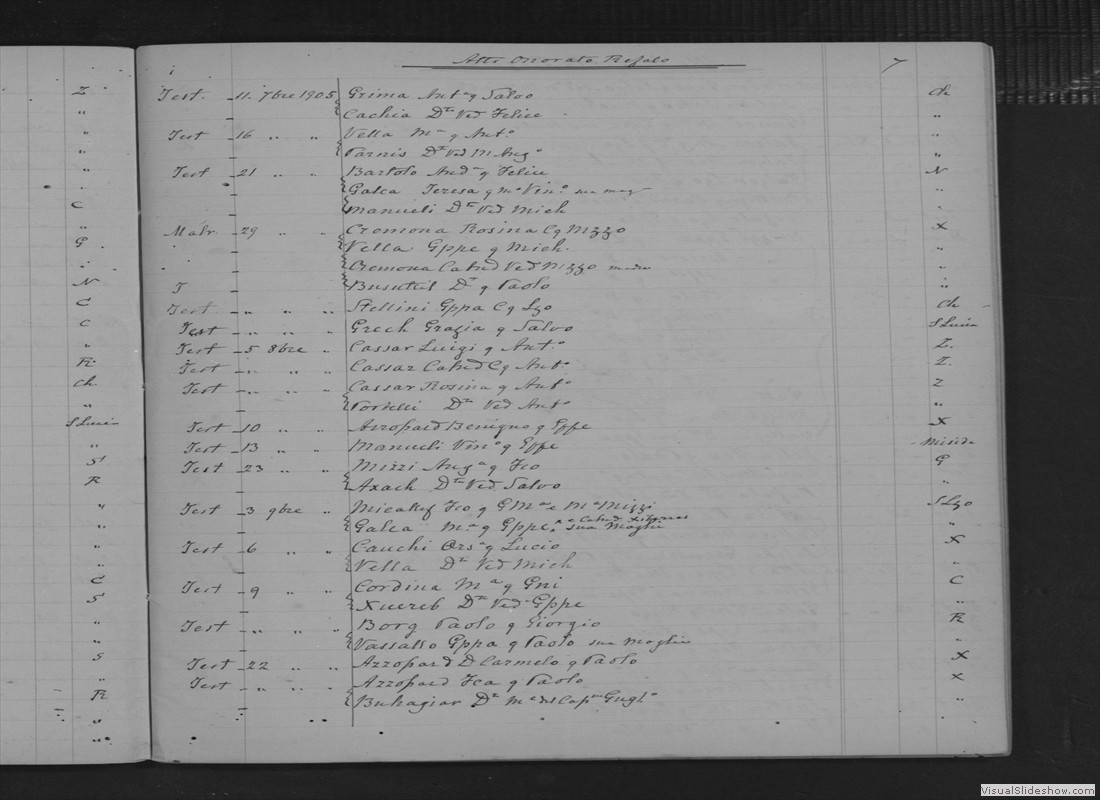 Atti Onorato Refalo 7
Z Test. 11. 7bre 1905 Grima Ant.a q Salvo Ch
" Cachia D.ta Ved Felice "
" Test 16 " " Vella M.a q Ant.o
" Farnis D.ta Ved M Ang.o "
" Test 21 " " Bartolo And q Felice N
Galea Teresa q
C Manueli D.ta Ved Mich
" 29 " " Cremona Rosina Cq Nizzo X
G Vella Gppe q Mich. "
Cremona Catnd Ved Nizzo "
N T Busuttil D.ta q Paolo "
C Test " " " Stellini Gppa Cq Lzo Ch
C Test " " " Grech Grazia q Salvo S Lucia
" Test 5 8bre " Cassar Luigi q Ant.o Z.
Test " " " Cassar Catnd Cq Ant.o Z.
Ch. Test " " " Cassar Rosina q Ant.o Z
" Portelli D.ta Ved Ant.o "
S Lucia Test 10 " " Azzopard Benigno q Gppe X
" Test 13 " " Manueli Vin.o q Gppe
S Test 23 " " Mizzi Ang.a q Fco G
R Axach D.ta Ved Salvo "
" Test 3 9bre " Micallef Fco q S Lzo
" Galea M.a q Gppe sua Moglie "
" Test 6 " " Cauchi Ors.a q Lucio X
" Vella D.ta Ved Mich "
C Test 9 " " Cordina M.a q Gni C
S Xuereb D.ta Ved Gppe
" Test " " " Borg Paolo q Giorgio R
" Vassallo Gppa q Paolo sua Moglie "
S Test 22 " " Azzopard D Carmelo q Paolo X
" Test " " " Azzopard Fca q Paolo X
R Buhagiar D.ta
"
"
VisualSlideshow.com